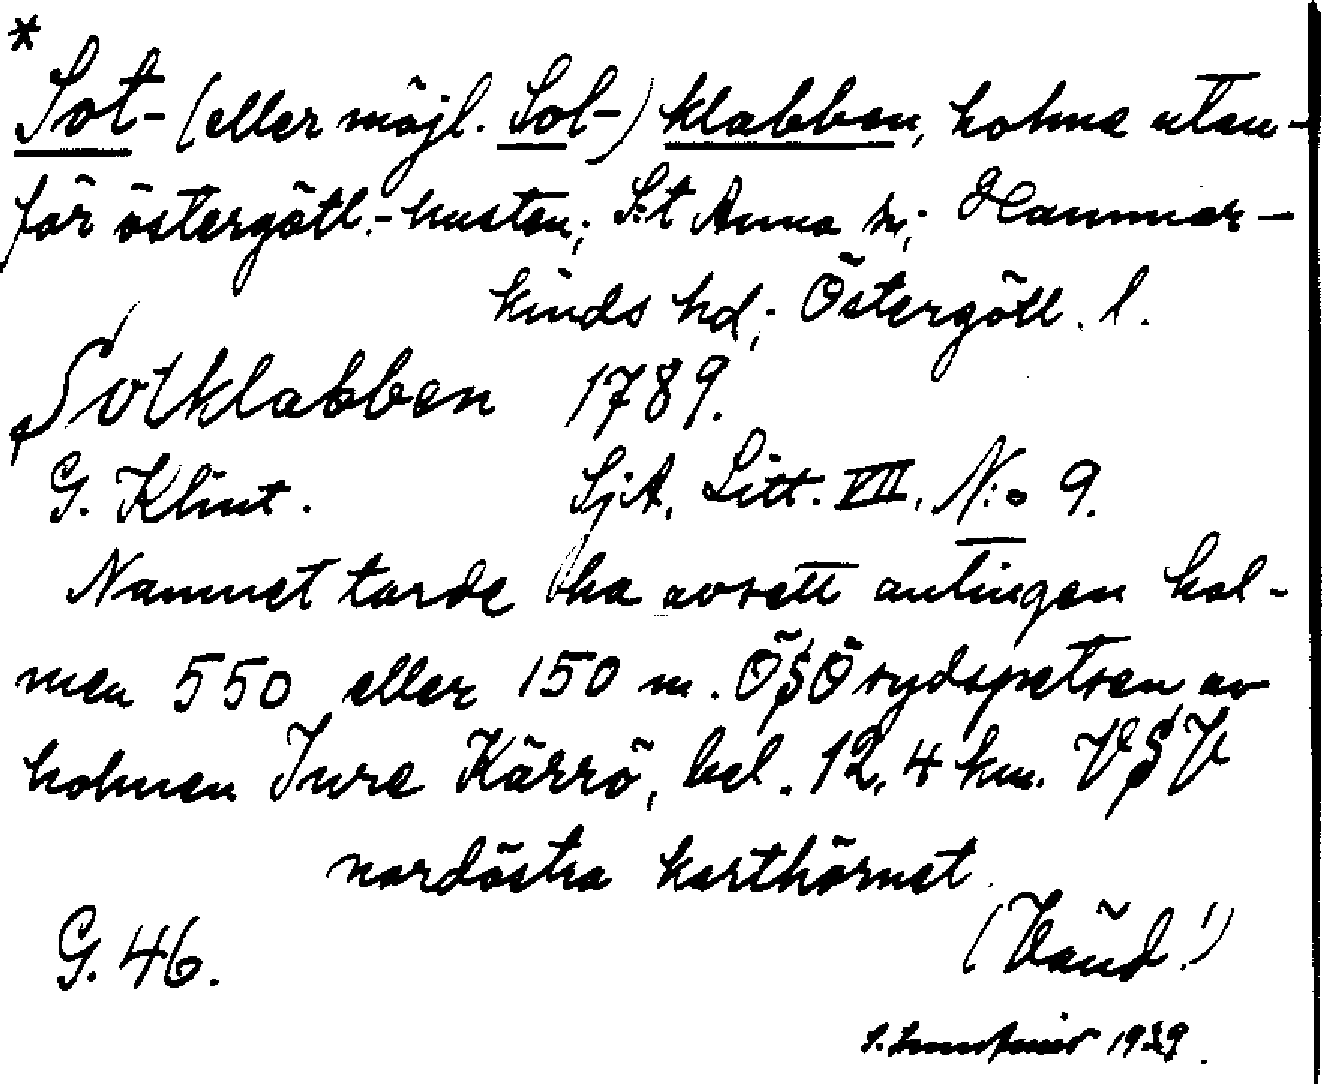 *
Sot- (eller möjl. Sol-) klabben, holme utan-
för östergötl.-kusten; S:t Anna sn; Hammar-
kinds hd; Östergötl. l.
Sotklabben 1789.
G. Klint. SjA, Litt. VII, N:o 9.
Namnet torde ha avsett antingen hol-
men 550 eller 150 m. ÖSÖ sydspetsen av
holmen Inre Kärrö, bel. 12,4 km. VSV
nordöstra karthörnet.
G. 46.
(Vänd!)
1939.